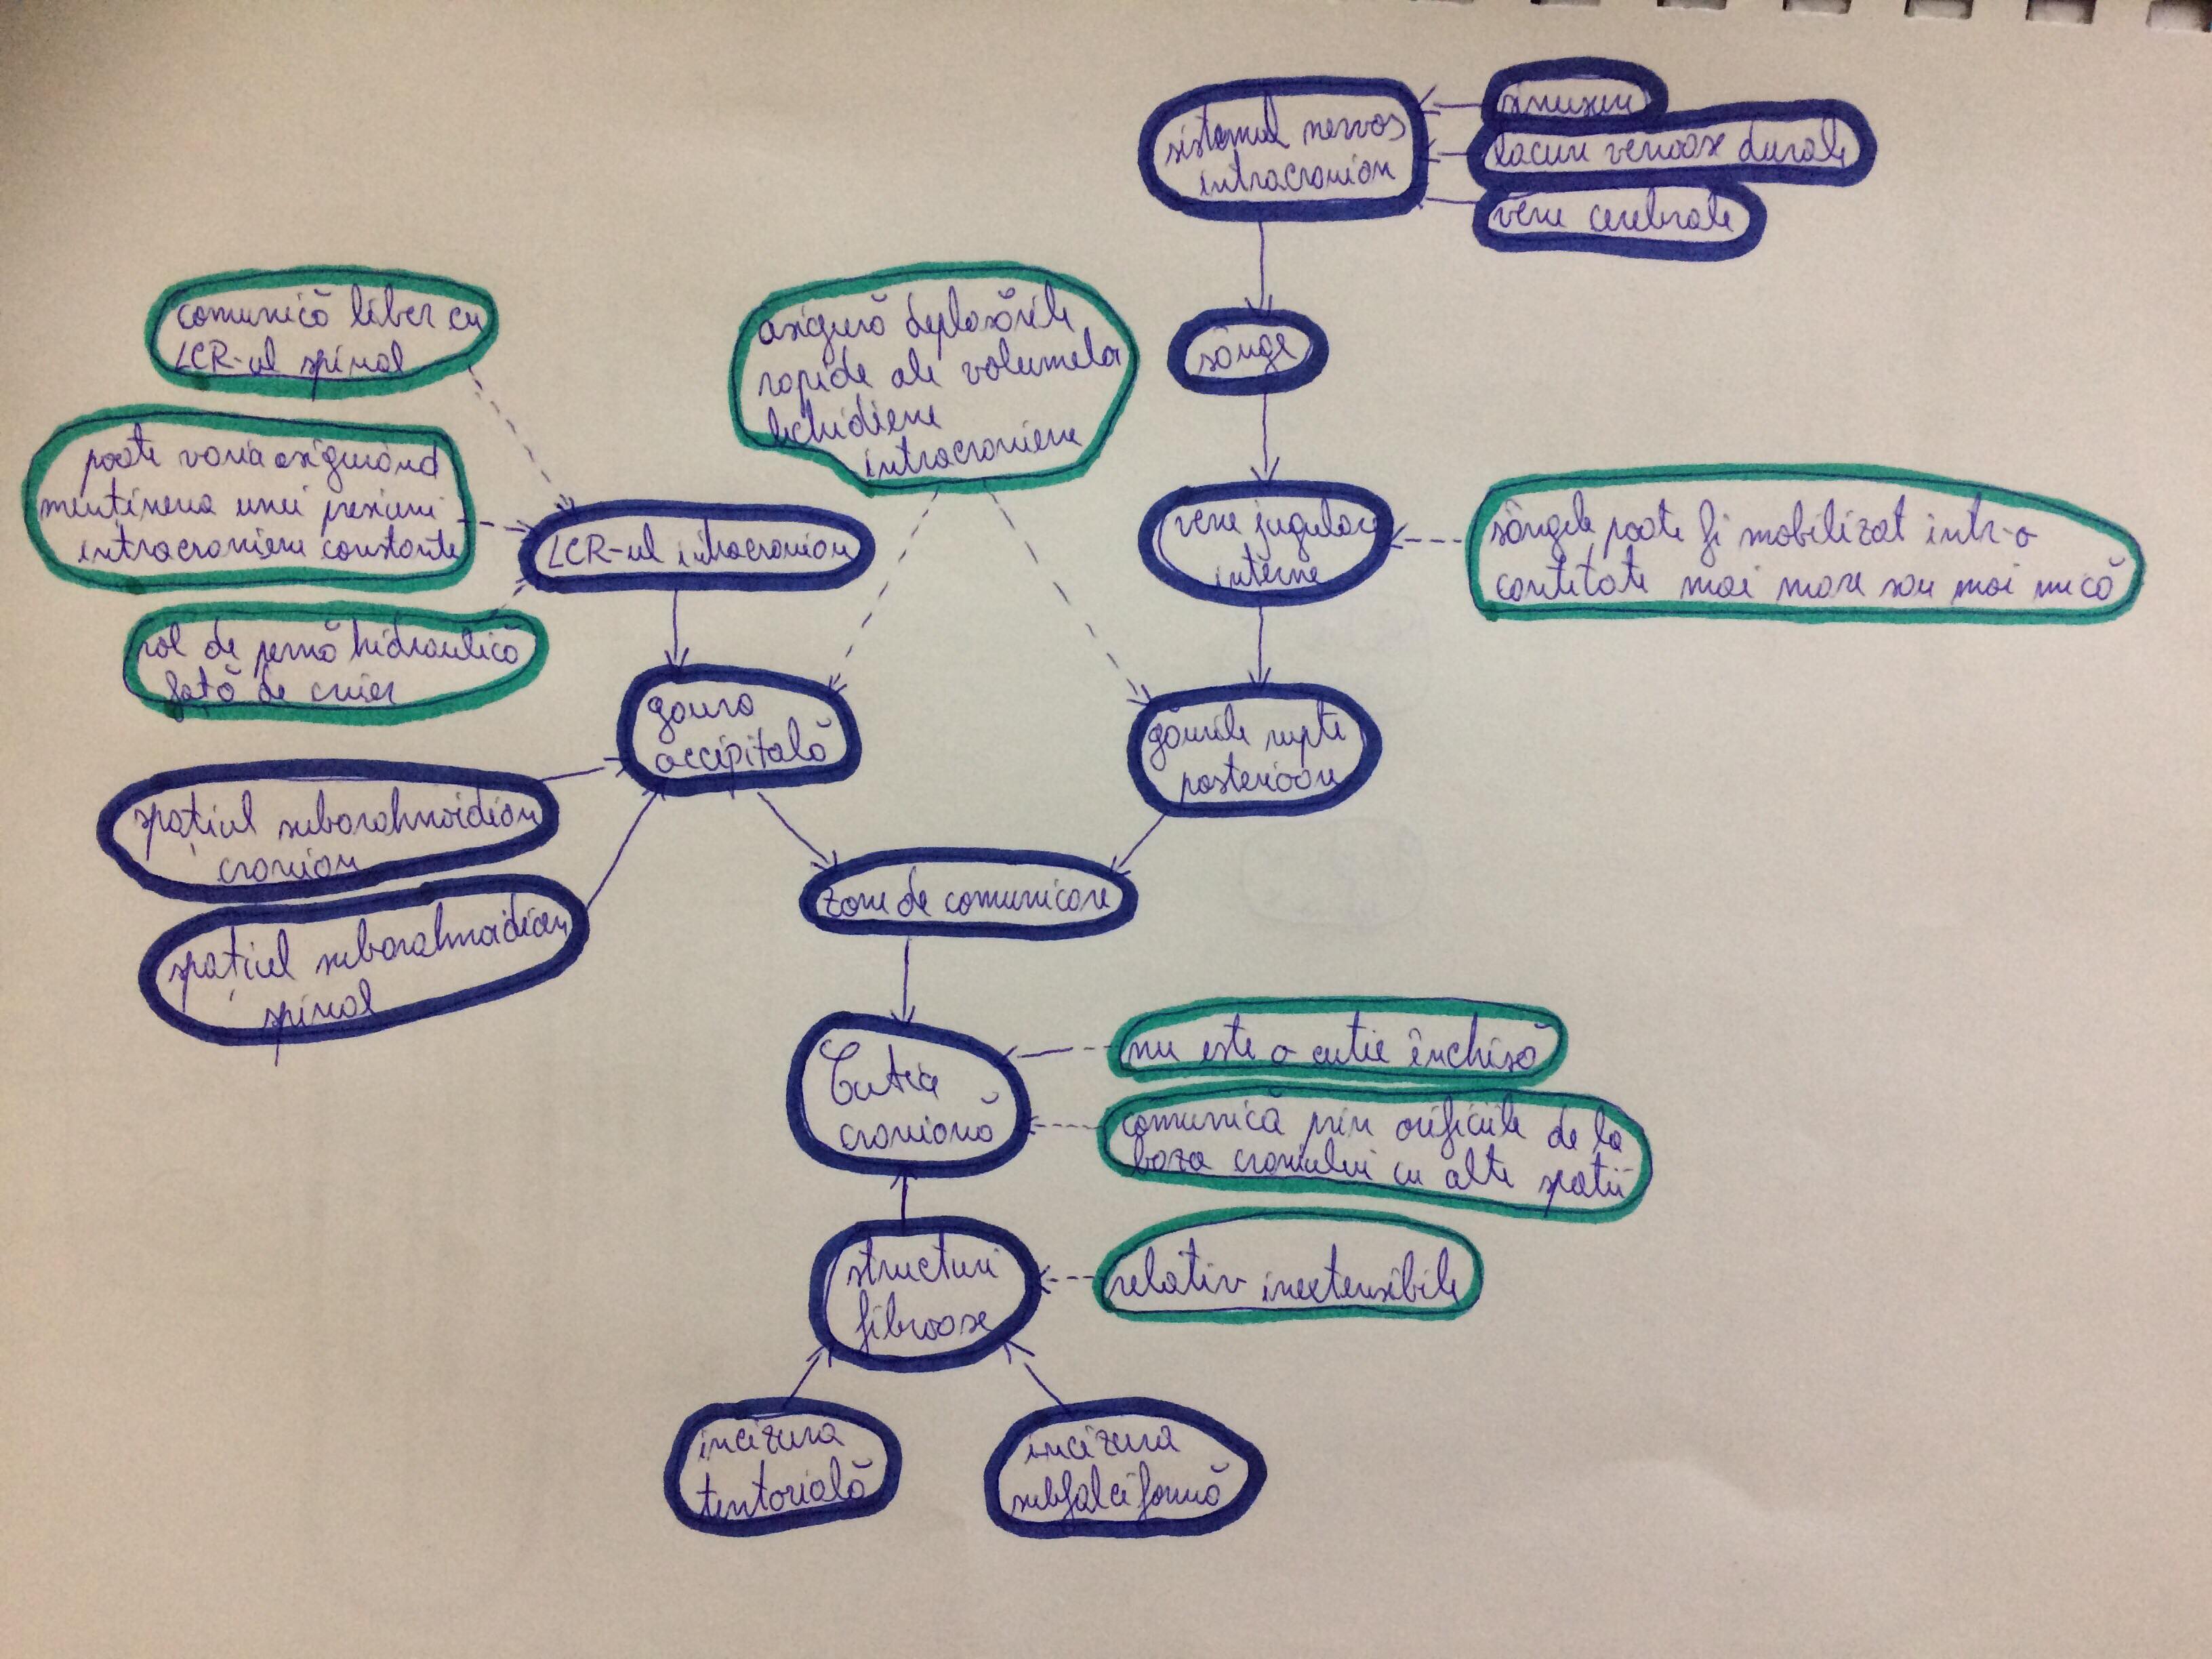 sinusuri
sistemul nervos
intracranian
lacuri venoase durale
vene cerebrale
comunică liber cu
LCR-ul spinal
asigură deplasările
rapide ale volumelor
lichidiene
intracraniene
sânge
poate varia asigurând
mentinerea unei presiuni
intracraniene constante
LCR-ul intracranian
vene jugulare
interne
sângele poate fi mobilizat intr-o
cantitate mai mare sau mai mică
rol de pernă hidraulică
față de creier
gaura
occipitală
găurile rupte
posterioare
spațiul subarahnoidian
cranian
zone de comunicare
spațiul subarahnoidian
spinal
Cutia
craniană
nu este o cutie închisă
comunică prin orificiile de la
baza craniului cu alte spatii
structuri
fibroase
relativ inextensibile
incizura
tentorială
incizura
subfalciformă